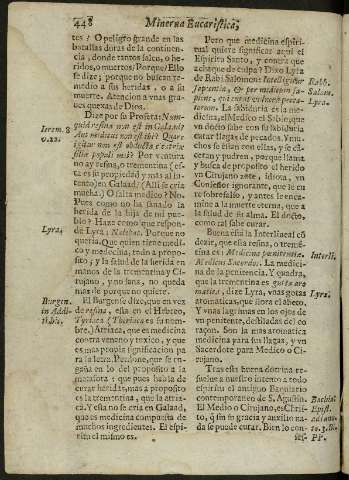 448
Minerva Eucaristica;
tes? O peligro grande en las
batallas duras de la continen-
cia, donde tantos salen, o he-
ridos, o muertos! Porque? Ello
se dize; porque no buscan re-
medio a sus heridas, o a su
muerte. Atencion a unas gra-
ves quexas de Dios.
Dize por su Profeta: Num-
quid resina non est in Galaad?
Aut medicus non est ibi? Quare
igitur non est obducta cicatrix
filiæ populi mei? Por ventura
no ay resina, o trementina (es-
ta es su propiedad y más al in-
tento) en Galaad? (Alli se cria
mucha.) O falta medico? No.
Pues como no ha sanado la
herida de la hija de mi pue-
blo? Haze como que respon-
de Lyra: Nolebat. Porque no
queria. Que quien tiene medi-
co y medicina, todo a propo-
sito; y la salud de la herida en
manos de la trementina y Ci-
rujano, y no sana, no queda
mas de porque no quiere.
El Burgense dize, que en vez
de resina, esta en el Hebreo,
Tyriaca (Theriaca es su nom-
bre,) Atriaca, que es medicina
contra veneno y toxico, y que
es mas propia significacion pa-
ra la letra. Perdone, que se en-
gaña en lo del proposito a la
que pues habla de
curar heridas, mas a proposito
es la trementina, que la atria-
ca. Y essa no se cria en Galaad,
que es medicina compuesta de
muchos ingredientes. El espi-
ritu el mismo es.
Ierem. 8
n.22.
Lyra;
Burgens.
in Addi-
tl. bic.
Pero que medicina espiri-
tual quiere significar aqui el
Espiritu Santo, y contra que
achaque de culpa? Dixo Lyra
de Rabi Salomon: Intelligitur
sapientia, & per medicum sa-
piens, qui curat vulnera pecca-
torum. La sabiduria es la me-
dicina, el Medico el Sabio, que
un docto sabe con su sabiduria
curar llagas de pecados. Veni-
chos se fian con ellas, y se cá-
ceran y pudren, porque llama
y busca de proposito el herido
un Cirujano zote, idiota, un
Confessor ignorante, que le en
tre sobresalso, y antes le enca-
mine a la muerte eterna, que a
la salud de su alma. El docto,
como tal sabe curar.
Buena es la Interlineal có
dezir, que esta resina, o tremé-
tina es: Medicina pœnitentiæ.
Medicus sacerdos. La medici-
na de la penitencia. Y quadra,
que la trementina es gutta aro
matica, dize Lyra, unas gotas
aromaticas, que llora el abeto.
Y unas lagrimas en los ojos de
un penitente, destiladas del co
raçon. Son la mas aromatica
medicina para sus llagas, y un
Sacerdote para Medico o Ci-
rujano.
Tras esta buena dotrina re-
suelve a nuestro intento a todo
espiritu el antiguo Bacquiario
contemporaneo de S. Agustin.
El Medio o Cirujano, es Chris-
to, q̃ sin su gracia y auxilio na-
da se puede curar. Bien lo con-
fies-
Rabb.
Salom.
Lyra.
Interli.
Lyra.
Bachia.
Epist.
to. 3. Bi.
PP.